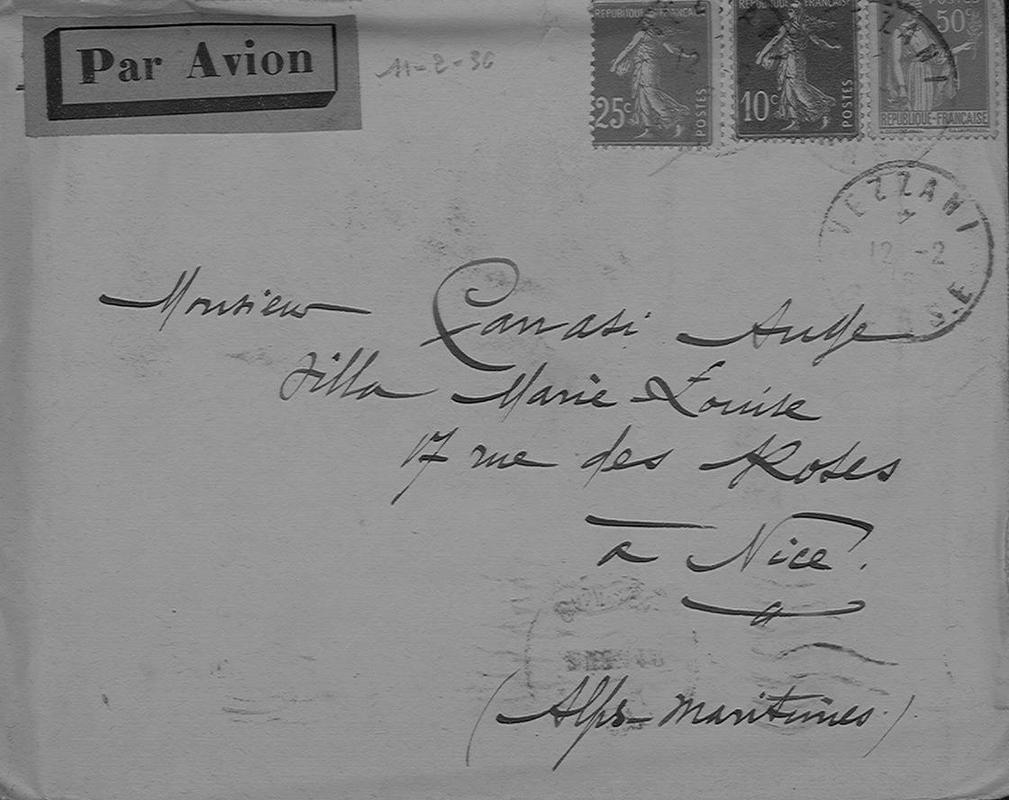 Par Avion
11-2-36
REPUBLIQUE FRANÇAISE
25c
POSTES
REPUBLIQUE FRANÇAISE
10c
POSTES
POSTES
50c
REPUBLIQUE-FRANÇAISE
ZZANI
VEZZANI
12 -2
SE
Monsieur Canasi Ange
Villa Marie-Louise
17 rue des Roses
a Nice.
(Alpes-maritimes.)